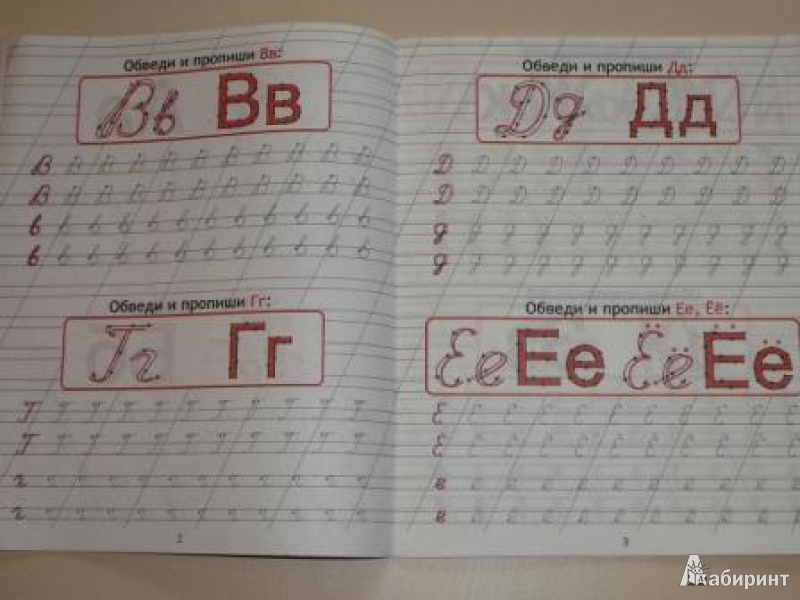 Обведи и пропиши Вв:
Вв Вв
В В В В В В В В В В В В
В В В В В В В В В В В В
в в в в в в в в в в в в
в в в в в в в в в в в в
Обведи и пропиши Гг:
Гг Гг
Г Г Г Г Г Г Г Г Г Г Г Г
Г Г Г Г Г Г Г Г Г Г Г Г
г г г г г г г г г г г г
г г г г г г г г г г г г
2
Обведи и пропиши Дд:
Дд Дд
Д Д Д Д Д Д Д Д Д Д
Д Д Д Д Д Д Д Д Д Д
д д д д д д д д д д
д д д д д д д д д д
Обведи и пропиши Ее, Ёё:
Ее Ее Ёё Ёё
Е Е Е Е Е Е Е Е Е Е Е
Е Е Е Е Е Е Е Е Е Е Е
е е е е е е е е е е е
е е е е е е е е е е е
3
Лабиринт